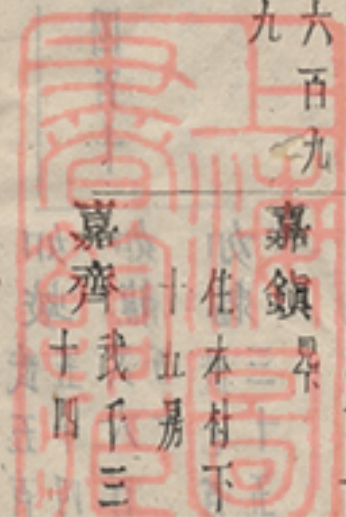 六百九
九
嘉鎮
住本村下
十五房
嘉齊
武千三
十四